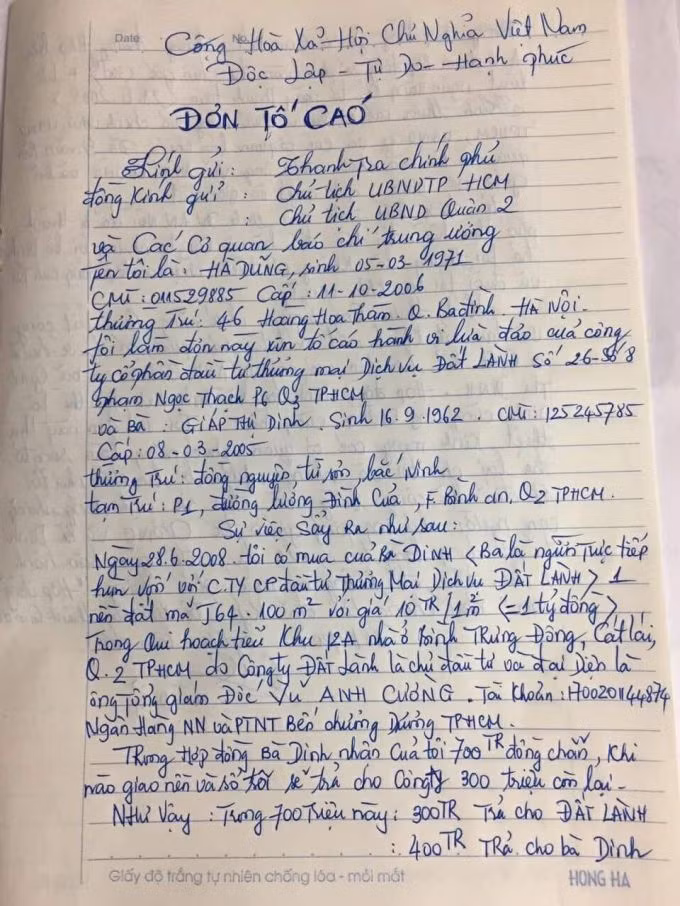 Date
No.
Cộng Hoà Xả Hội Chủ Nghỉa Việt Nam
Độc Lập - Tự Do - Hạnh phúc
ĐƠN TỐ CAÓ
Kính gửi : Thanh Tra chính phủ
đồng Kính gửi : Chủ tịch UBNDTP HCM
: Chủ tịch UBND Quận 2
và Các Cơ quan báo chí trung ương
Tên tôi là : HÀ DŨNG, sinh 05-03-1971
CMT : 011529885 Cấp : 11-10-2006
thường Trú : 46 Hoàng Hoa Thám. Q. Ba đình. HÀ NỘI.
tôi làm đơn này xin tố cáo hành vi lừa đảo của công
ty cổ phần đầu tư thương mại Dịch Vụ ĐẤT LÀNH Số 26-
phạm Ngọc Thạch P6 Q3 TPHCM
và Bà : GIÁP THỊ Dinh . Sinh 16.9.1962 . CMT : 125245785
Cấp : 08-03-2005
thường Trú : đồng nguyên, từ sơn, bắc Ninh
tạm Trú : P1, đường lương Đình Của, F. Bình an, Q2 TPHCM.
Sự việc Sảy Ra như sau :
Ngày 28.6.2008. tôi có mua của BÀ DINH < Bà là người Trực tiếp
hùn vốn với C.TY CP đầu tư Thương Mại Dịch vụ ĐẤT LÀNH > 1
nền đất mã J64 . 100 m² với giá 10 TR/1 m² (= 1 tỷ đồng)
Trong Qui hoạch tiểu Khu 12A nhà ở Bình TRưng Đông, Cát lái,
Q. 2 TPHCM do Công ty ĐẤT Lành là chủ đầu tư và đại Diện là
ông Tổng giám Đốc VŨ ANH CƯỜNG . Tài Khoản : 1700201144874
Ngân Hàng NN và PTNT Bến chương Dương TPHCM.
TRong Hợp đồng Bà Dinh nhận Của tôi 700 TR đồng chẵn, Khi
nào giao nền và sổ tôi sẽ trả cho Công ty 300 triệu còn lại -
NHư Vậy : Trong 700 Triệu này : 300TR Trả cho ĐẤT LÀNH
: 400 TR TRả cho bà Dinh
Giấy độ trắng tự nhiên chống lóa - mỏi mắt
HONG HA